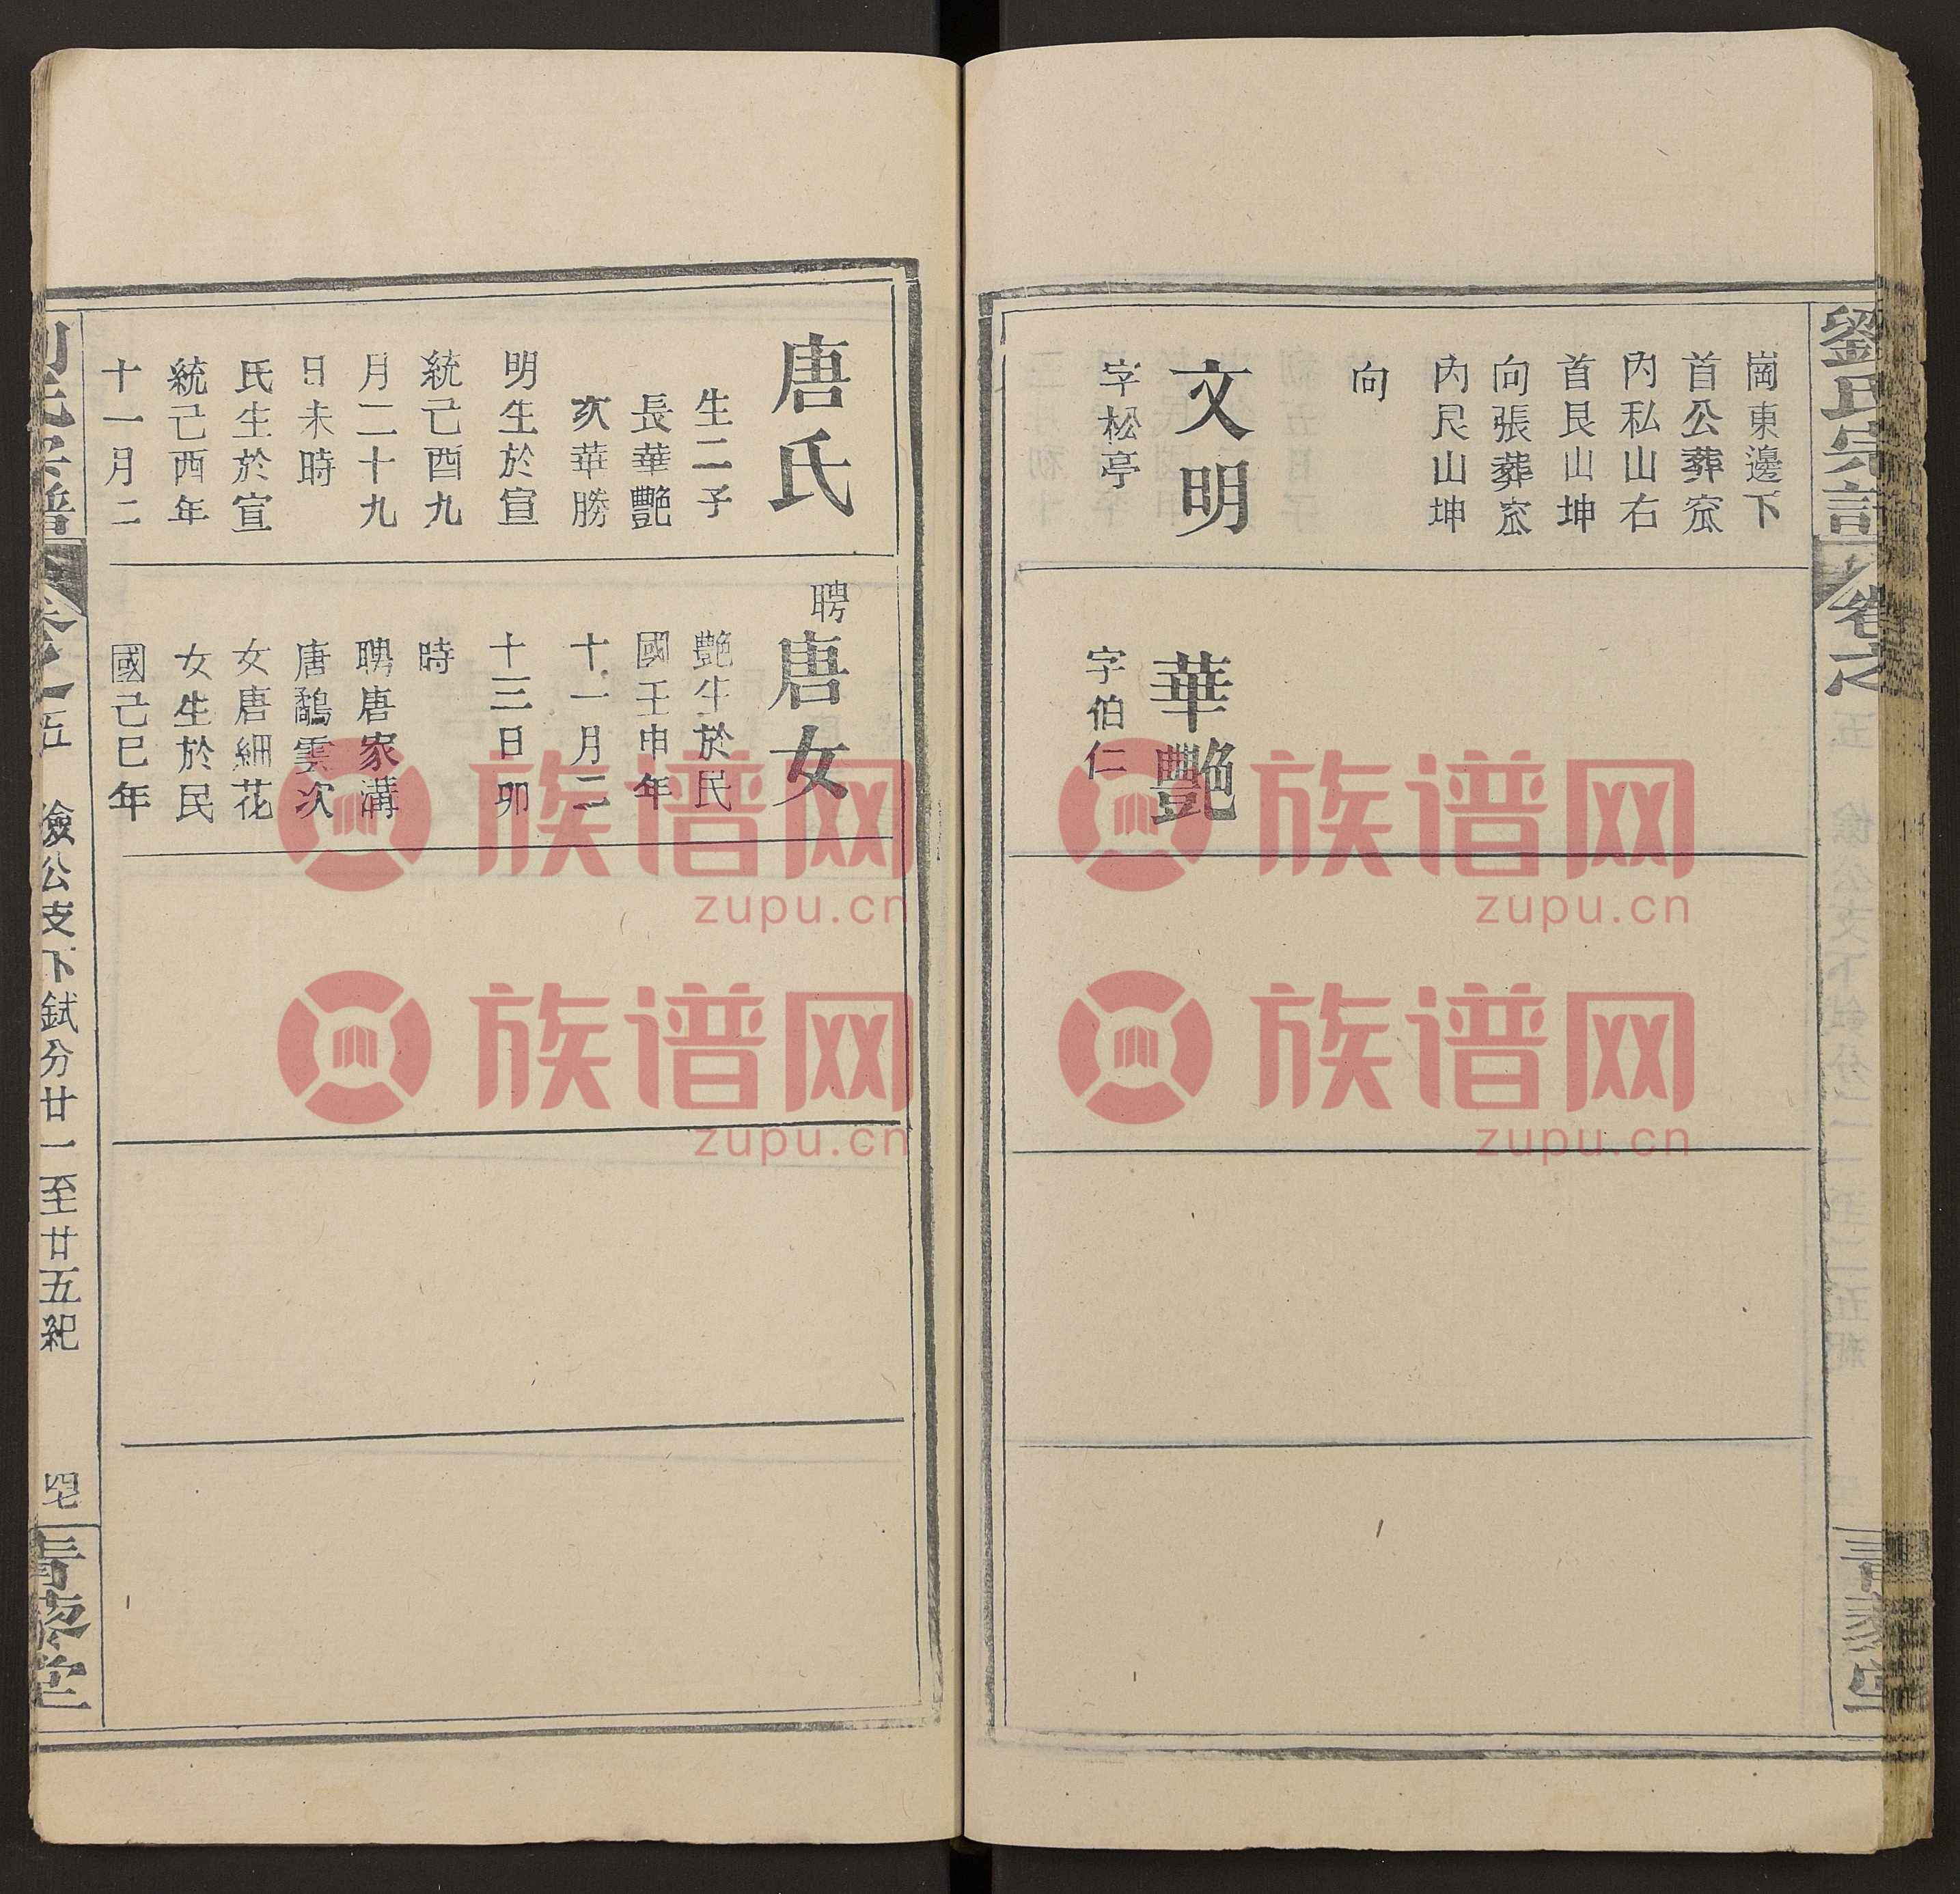 劉氏宗譜
卷之
崗東邊下
首公葬窊
內私山右
首艮山坤
向張葬窊
內艮山坤
向
文明
字松亭
華艷
字伯仁
唐氏
生二子
長華艷
次華勝
明生於宣
統己酉九
月二十九
日未時
氏生於宣
統己酉年
十一月二
聘
唐女
艷生於民
國壬申年
十一月二
十三日卯
時
聘唐家溝
唐鷸雲次
女唐細花
女生於民
國己巳年
劉氏宗譜
卷之一五
儉公支下鉽分廿一至廿五紀
四七
青藜堂
族谱网
zupu.cn
族谱网
zupu.cn
族谱网
zupu.cn
族谱网
zupu.cn